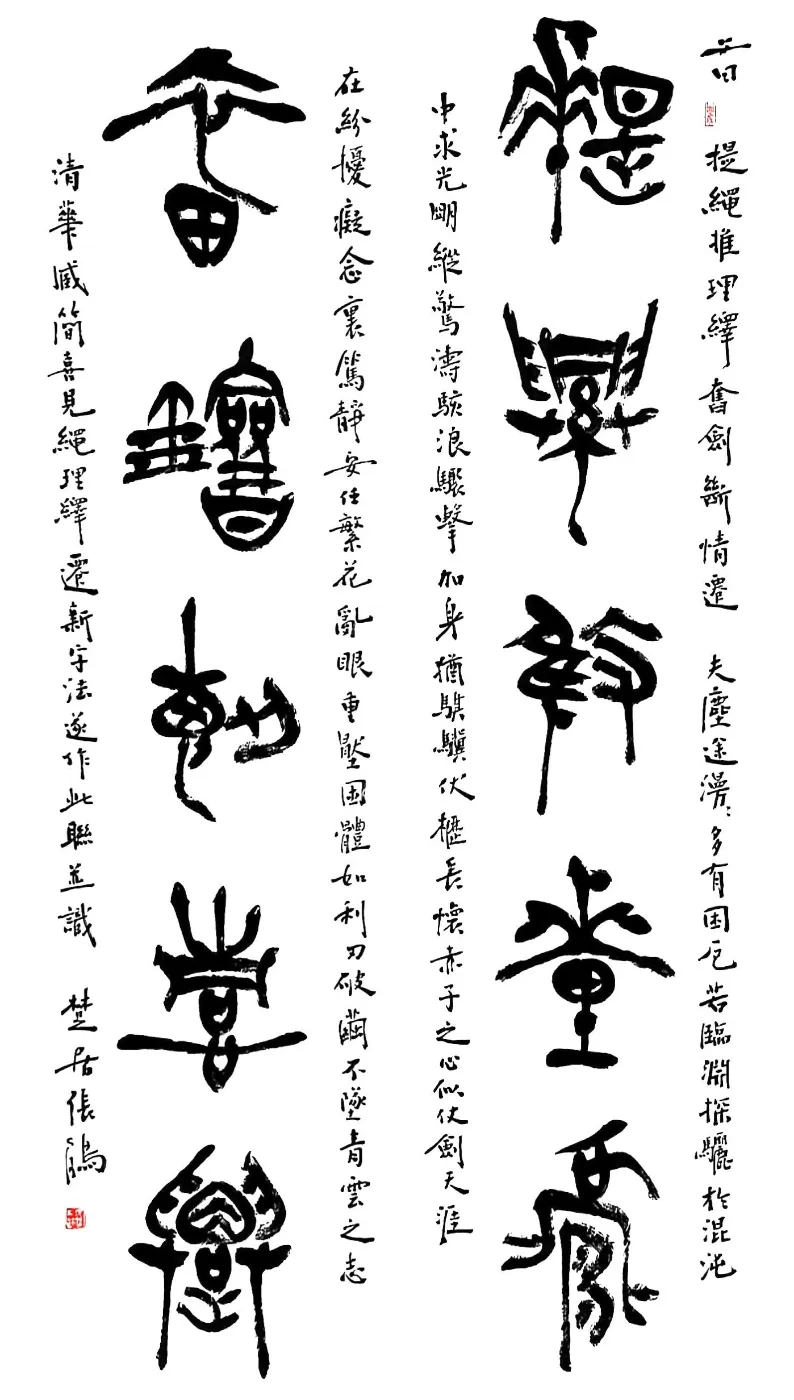 提繩推理繹奮劍斷情遷 夫塵途漫漫多有困厄若臨淵探驪於混沌
提繩推理繹
中求光明縱驚濤駭浪驟擊加身猶騏驥伏櫪長懷赤子之心似仗劍天涯
在紛擾癡念裏篤靜安任繁花亂眼重壓困體如利刃破繭不墜青雲之志
奮劍斷情遷
清華臧簡喜見繩理繹遷新字法遂作此聯並識 楚居張鵬